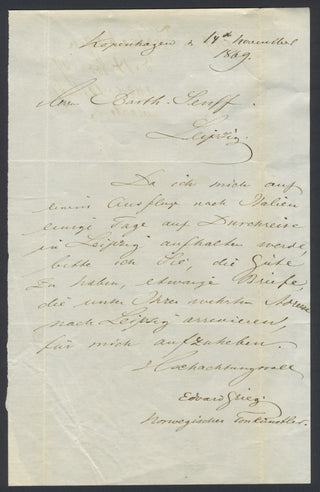 Kopenhagen d. 14de November
1869.
Herrn Barth. Senff.
Leipzig.
Da ich mich auf
einem Ausfluge nach Italien
einige Tage auf Durchreise
in Leipzig aufhalten werde,
bitte ich Sie, die Güte
zu haben, etwaige Briefe,
die unter Ihrer werthen Adresse
nach Leipzig arrivieren,
für mich aufzuheben.
Hochachtungsvoll
Edvard Grieg.
Norwegischer Tonkünstler.